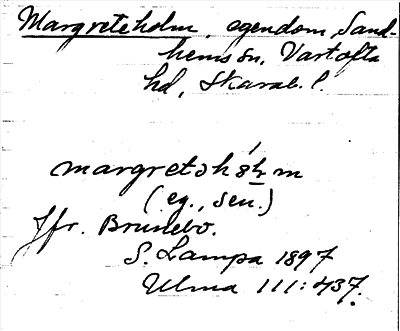 Margreteholm, egendom, Sand-
hems sn, Vartofta
hd, Skarab. l.
margretəh
(eg., sen.)
Jfr. Brunebo.
S. Lampa 1897
Ulma 111:437.